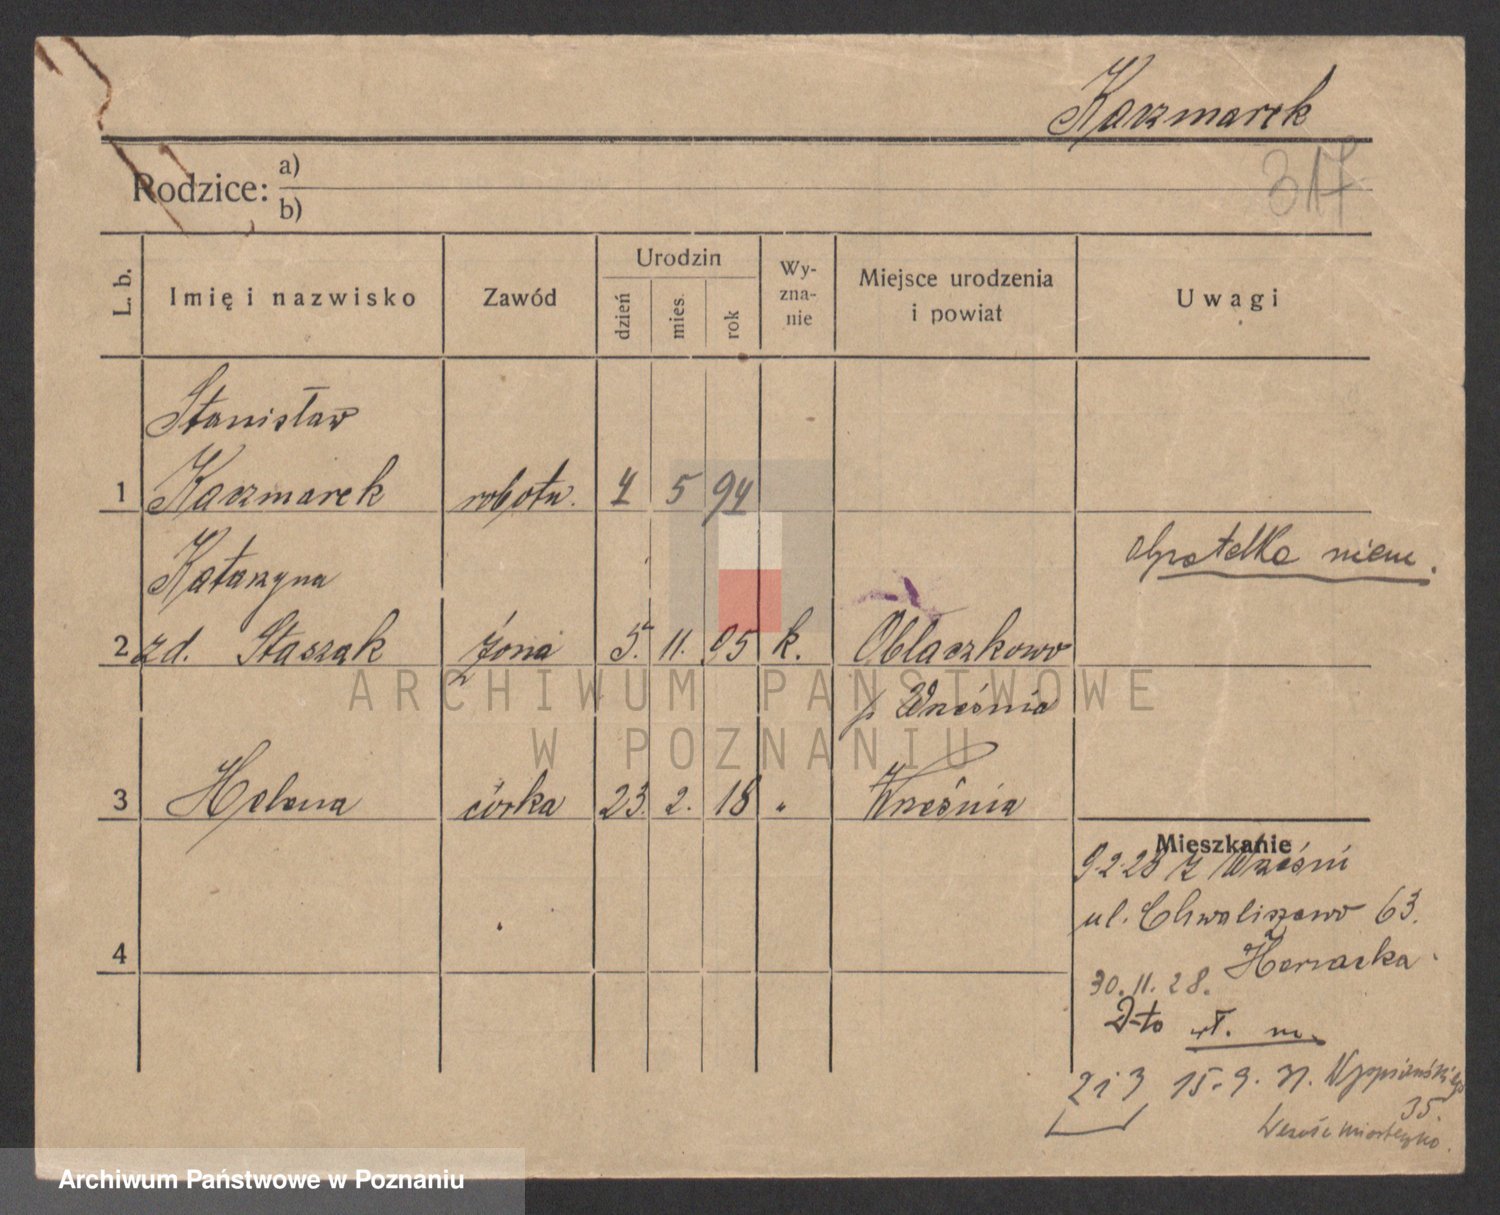 Kaczmarek
317
Rodzice: a)
b)
L. b.
Imię i nazwisko
Zawód
Urodzin
dzień
mies.
rok
Wy-
zna-
nie
Miejsce urodzenia
i powiat
Uwagi
Stanisław
1 Kaczmarek robotn. 4 5 94
Katarzyna
2 zd. Staszak żona 5. 11. 95 k. Oblaczkowo
p. Września
3 Helena córka 23. 2. 18 " Września
4
niem.
Mieszkanie
9.2.28 z Wrześni
ul. Chwaliszewo 63.
30.11.28.
D-to wł. m.
2 i 3 15.9.31. Wyspiańskiego
35.
Września
ARCHIWUM PAŃSTWOWE
W POZNANIU
Archiwum Państwowe w Poznaniu